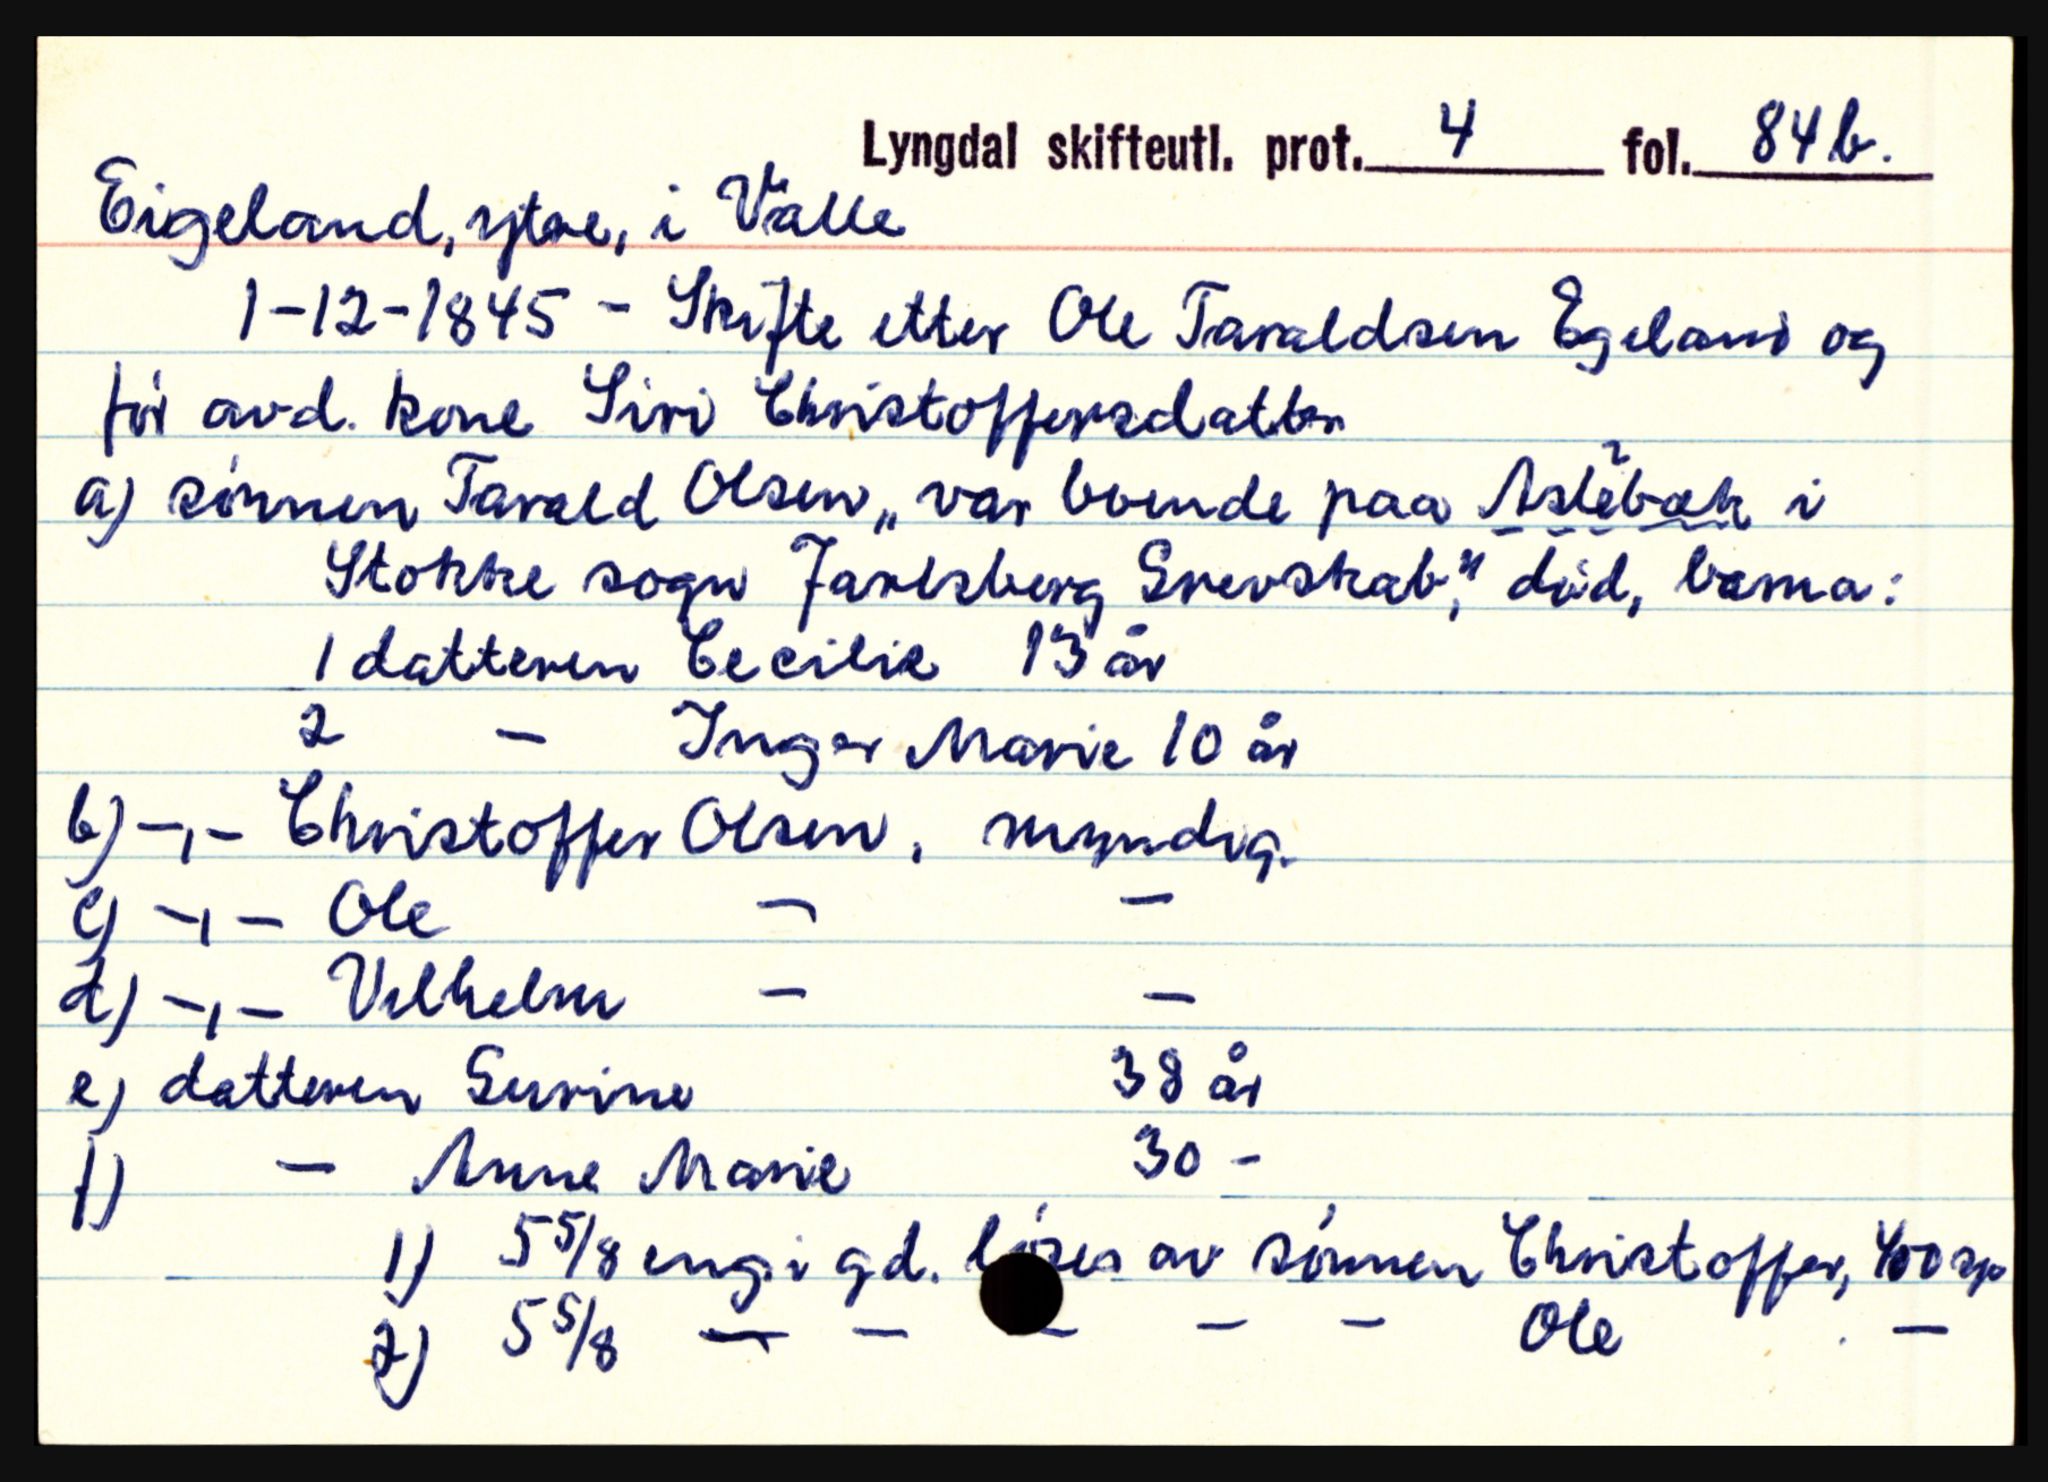 Lyngdal skifteutl. prot. 4 fol. 84b.
Eigeland, ytre, i Valle
1-12-1845 - Skifte etter Ole Taraldsen Egeland og
før avd. kone Siri Christoffersdatter
a) sønnen Tarald Olsen „var boende paa Aslebæk i
Stokke sogn Jarlsberg Grevskab", død, barna:
1 datteren Cecilie 13 år
2 — Inger Marie 10 år
b) -,- Christoffer Olsen, myndig.
c) -,- Ole — —
d) -,- Vilhelm — —
e) datteren Gurine 38 år
f) — Anne Marie 30 -
1) 5 5/8 eng. i gd. løses av sønnen Christoffer, 400 sp
2) 5 5/8 — — — — — Ole —